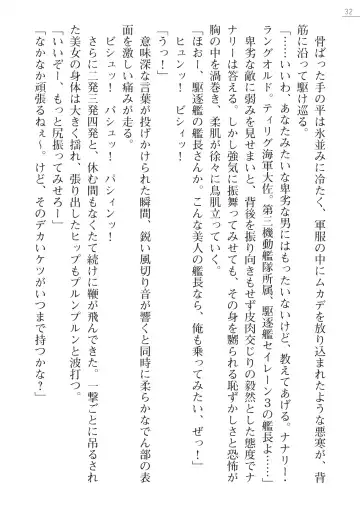 32
骨ばった手の平は氷並みに冷たく、軍服の中にムカデを放り込まれたような悪寒が、背
筋に沿って駆け巡る。
「……いいわ、あなたみたいな卑劣な男にはもったいないけど、教えてあげる。ナナリー・
ラングオルド。ティリング海軍大佐。第三機動艦隊所属、駆逐艦セイレーン３の艦長よ…」
卑劣な敵に弱みを見せまいと、背後を振り向きもせず皮肉交じりの毅然とした態度でナ
ナリーは答える。しかし強気に振舞ってみせても、その身を嬲られる恥ずかしさと恐怖が
胸の中を渦巻き、柔肌が徐々に鳥肌立っていく。
「ほおー、駆逐艦の艦長さんか。こんな美人の艦長なら、俺も乗ってみたい、ぜっ！」
ヒュンッ！　ビシィッ！
「うっ！」
意味深な言葉が投げかけられた瞬間、鋭い風切り音が響くと同時に柔らかなでん部の表
面を激しい痛みが走る。
ビシュッ！　パシュッ！　パシィンッ！
さらに二発三発四発と、休む間もなくたて続けに鞭が飛んできた。一撃ごとに吊るされ
た美女の身体は大きく揺れ、張り出したヒップもプルンプルンと波打つ。
「いいぞー、もっと尻振ってみせろー」
「なかなか頑張るねぇ～。けど、そのデカいケツがいつまで持つかな？」